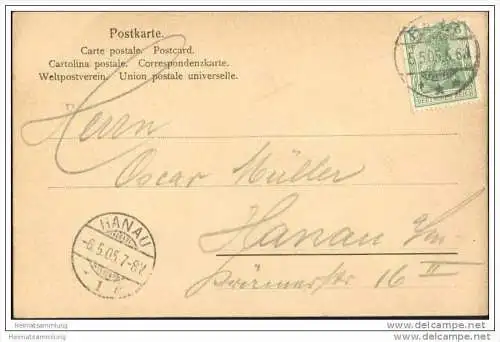 Postkarte.
Carte postale. Postcard.
Cartolina postale. Correspondenzkarte.
Weltpostverein. Union postale universelle.
6.5.05.
DEUTSCHES REICH
Herrn
Oscar Müller
Hanau a/m
16 II
HANAU
-6.5.05.7-8V.
Heimatsammlung
Heimatsammlung
http://www.delcampe.net